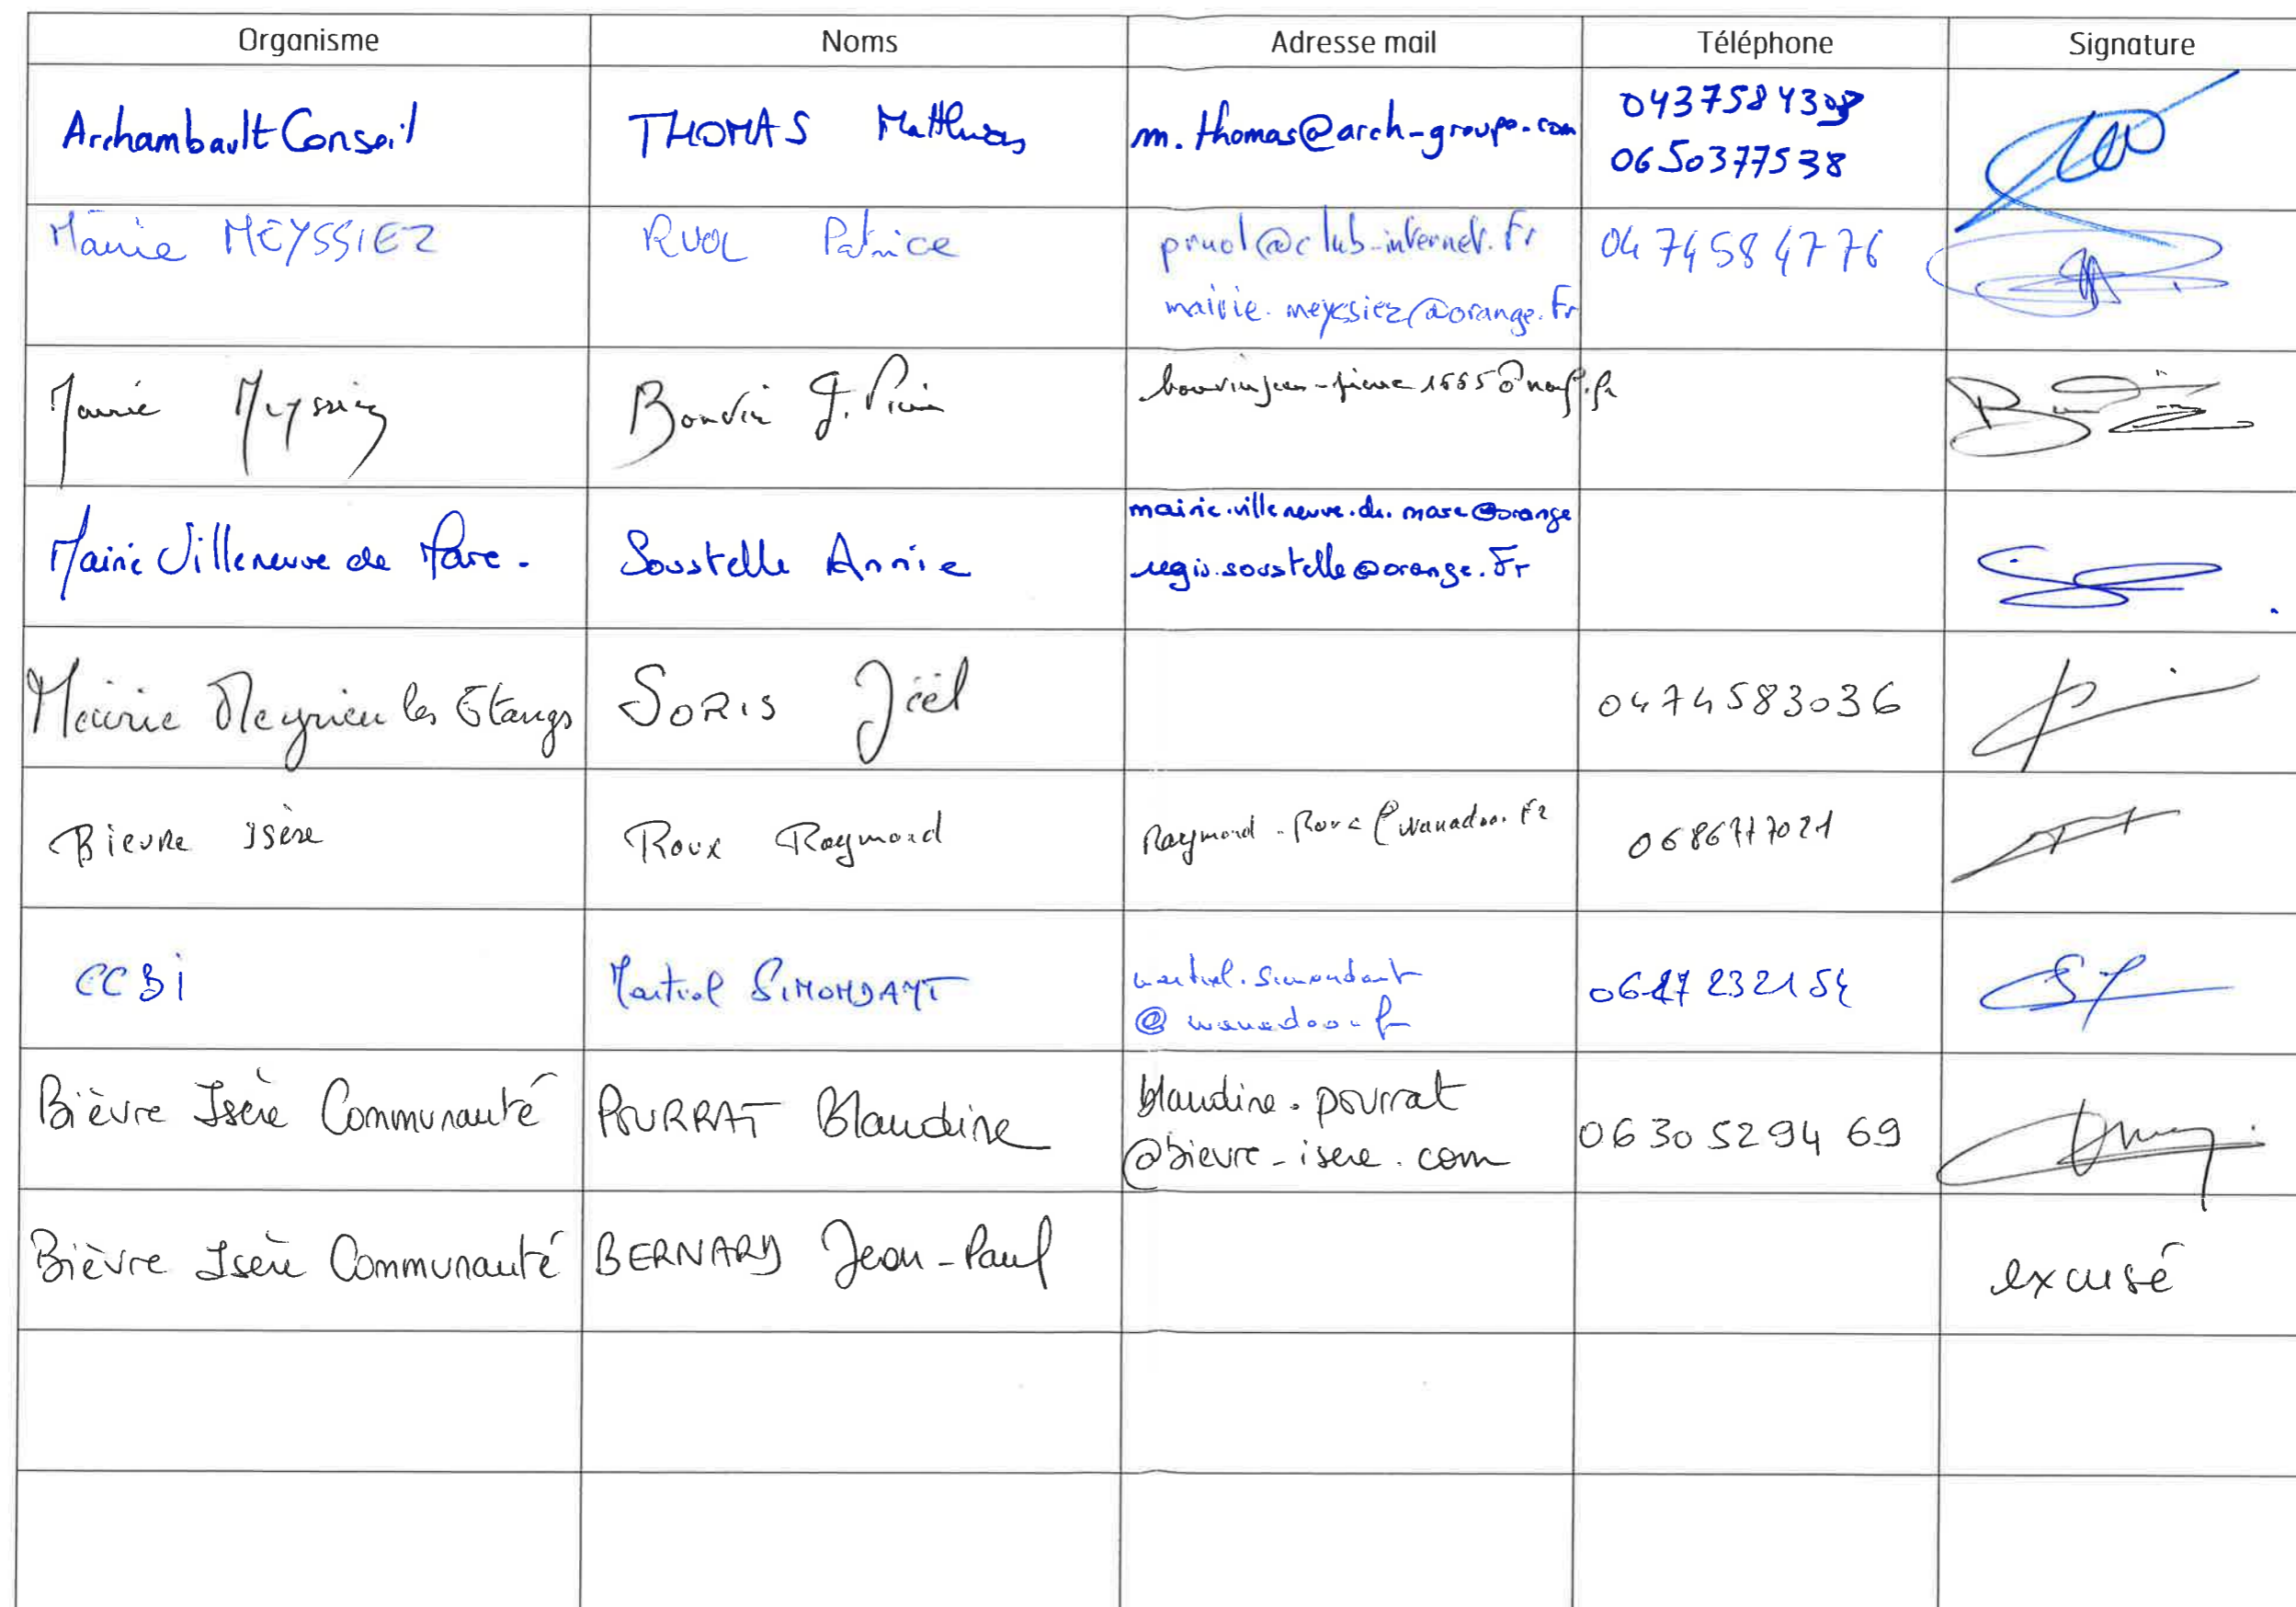 Organisme Noms Adresse mail Téléphone Signature
Archambault Conseil THOMAS Matthias m.thomas@arch-groupe.com 04375843
0650377538
Mairie MEYSSIEZ RUOL Patrice pruol@club-internet.Fr 0474584776
mairie.meyssiez@orange.Fr
Mairie Meyssiez J. Pierre
Mairie Villeneuve de Marc. Soustelle Annie mairie.villeneuve.de.marc@orange
regis.soustelle@orange.Fr
Mairie Meyrieu les Etangs SORIS Joël 0474583036
Bievre Isère Roux Raymond Raymond.Roux@wanadoo.Fr 0686777021
CCBI Martial SIMONDANT martial.simondant
@wanadoo.fr
Bièvre Isère Communauté POURRAT Blandine blandine.pourrat 0630529469
@bievre-isere.com
Bièvre Isère Communauté BERNARD Jean-Paul excusé